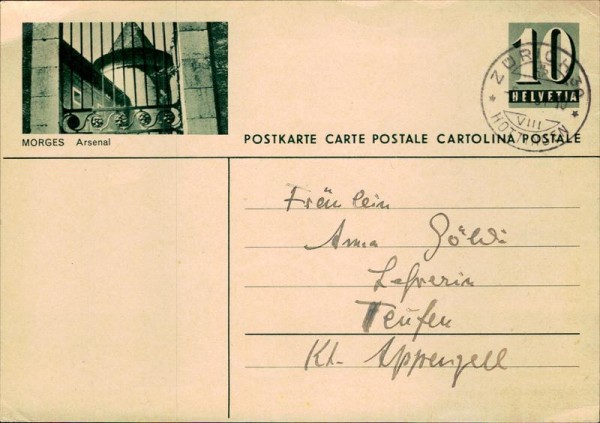 MORGES Arsenal
POSTKARTE CARTE POSTALE CARTOLINA POSTALE
10
HELVETIA
ZÜRICH
VIII
HOTTINGEN
Fräulein
Anna Göldi
Lehrerin
Teufen
Kt. Appenzell